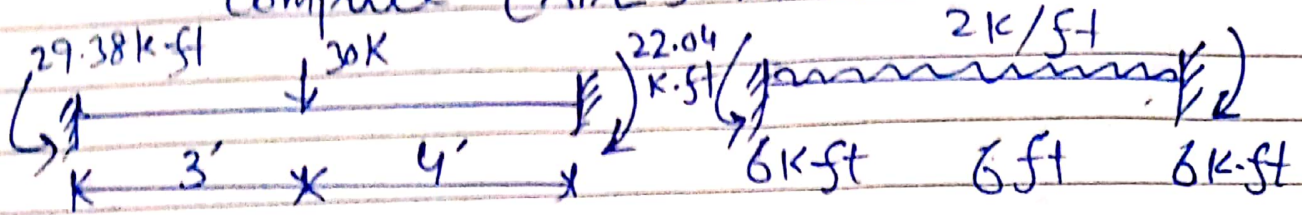 29.38k-ft 30K 22.04 2K/ft
K.ft
3' 4' 6K-ft 6 ft 6K-ft